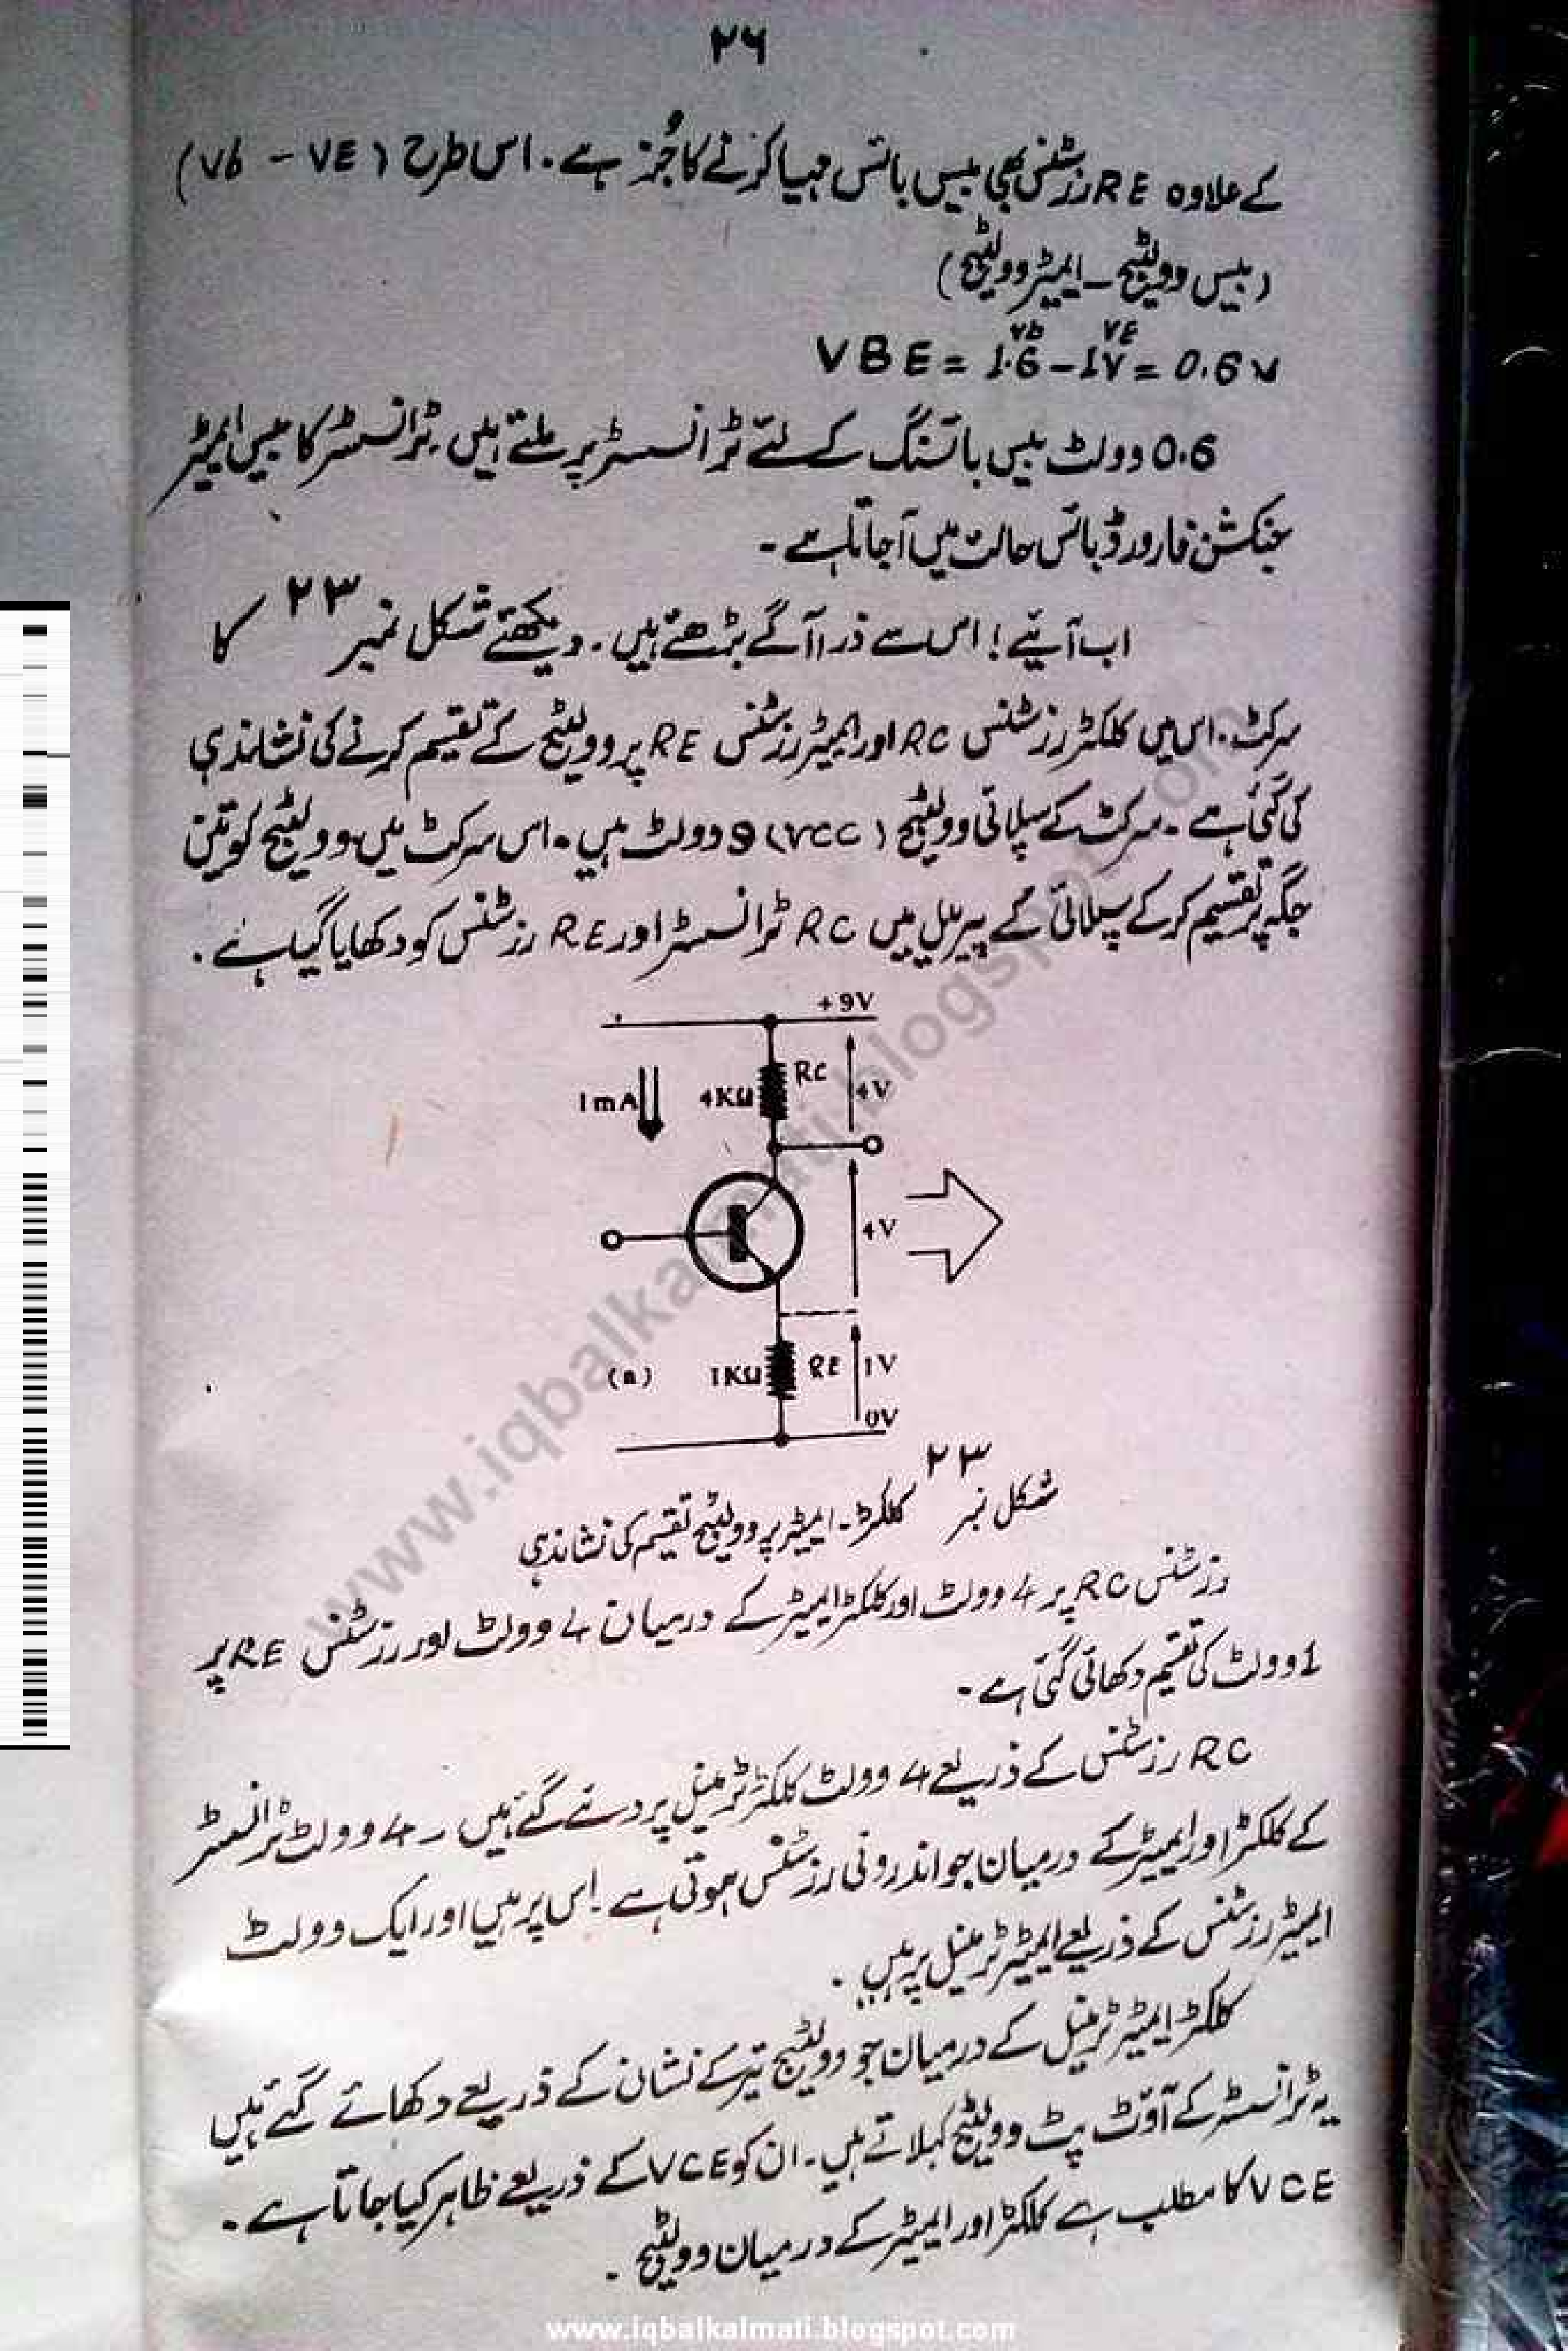 ۲۶
کے علاوہ RE رزسٹنس بھی بیس بائس مہیا کرنے کا جُز ہے۔ اس طرح (Vb - VE)
(بیس وولٹیج - ایمیٹر وولٹیج)
Vb VE
VBE = 1.6 - 1V = 0.6 V
0.6 وولٹ بیس بائسنگ کے لئے ٹرانسسٹر پر ملتے ہیں۔ ٹرانسسٹر کا بیس ایمیٹر
جنکشن فارورڈ بائس حالت میں آجاتا ہے۔
اب آیئے! اس سے ذرا آگے بڑھتے ہیں۔ دیکھئے شکل نمبر ۲۳ کا
سرکٹ۔ اس میں کلکٹر رزسٹنس RC اور ایمیٹر رزسٹنس RE پر وولٹیج کے تقسیم کرنے کی نشاندہی
کی گئی ہے۔ سرکٹ کے سپلائی وولٹیج (VCC) 9 وولٹ ہیں۔ اس سرکٹ میں وولٹیج کو تین
جگہ پر تقسیم کرکے سپلائی کے پیریلل میں RC ٹرانسسٹر اور RE رزسٹنس کو دکھایا گیا ہے۔
+9V
RC
1mA 4KΩ 4V
4V
(a) 1KΩ RE 1V
0V
شکل نمبر ۲۳ کلکٹر۔ ایمیٹر پر وولٹیج تقسیم کی نشاندہی
رزسٹنس RC پر 4 وولٹ اور کلکٹر ایمیٹر کے درمیان 4 وولٹ اور رزسٹنس RE پر
1 وولٹ کی تقسیم دکھائی گئی ہے۔
RC رزسٹنس کے ذریعے 4 وولٹ کلکٹر ٹرمینل پر دئے گئے ہیں۔ 4 وولٹ ٹرانسسٹر
کے کلکٹر اور ایمیٹر کے درمیان جو اندرونی رزسٹنس ہوتی ہے۔ اس پر ہیں اور ایک وولٹ
ایمیٹر رزسٹنس کے ذریعے ایمیٹر ٹرمینل پر ہیں۔
کلکٹر ایمیٹر ٹرمینل کے درمیان جو وولٹیج تیر کے نشان کے ذریعے دکھائے گئے ہیں
یہ ٹرانسسٹر کے آؤٹ پٹ وولٹیج کہلاتے ہیں۔ ان کو VCE کے ذریعے ظاہر کیا جاتا ہے۔
VCE کا مطلب ہے کلکٹر اور ایمیٹر کے درمیان وولٹیج۔
www.iqbalkalmati.blogspot.com
www.iqbalkalmati.blogspot.com